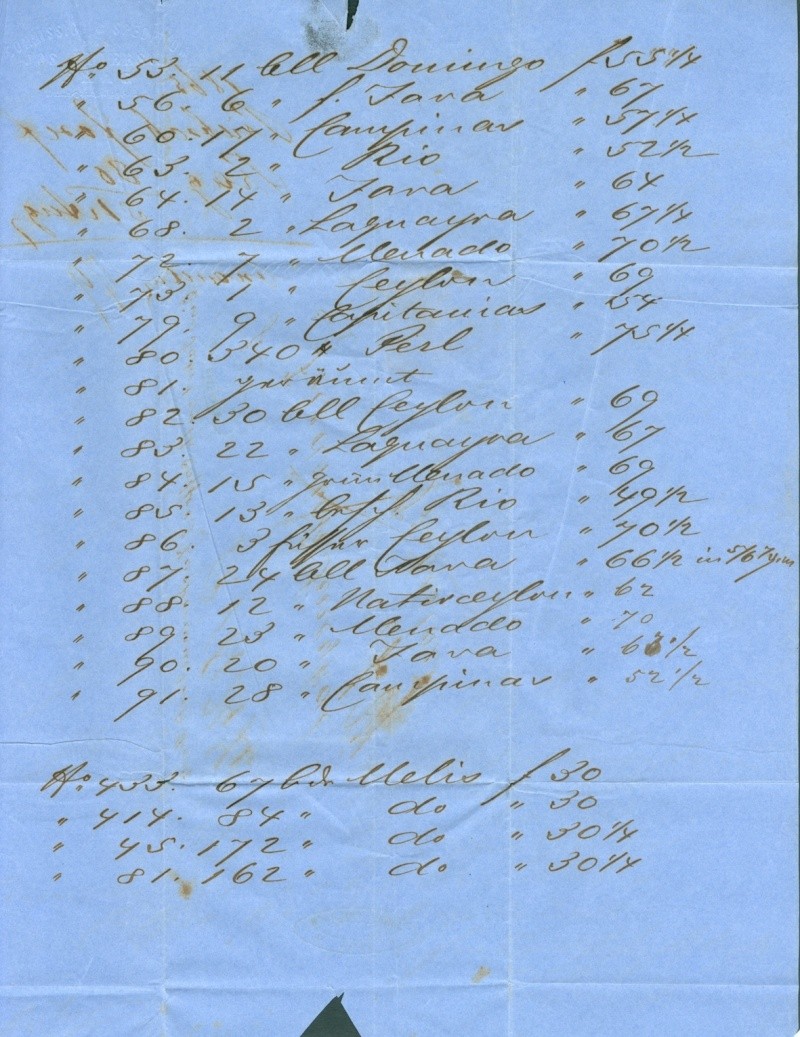 No 53. 11 bll Domingo f 55 1/4
" 56. 6 " f. Java " 67
" 60. 17 " Campinas " 57 1/4
" 63. 2 " Rio " 52 1/2
" 64. 14 " Java " 64
" 68. 2 " Laguayra " 67 1/4
" 72. 7 " Menado " 70 1/2
" 73. 7 " Ceylon " 69
" 79. 9 " Capitanias " 54
" 80. 340 ℔ Perl " 75 1/4
" 81. geräumt
" 82. 30 bll Ceylon " 69
" 83. 22 " Laguayra " 67
" 84. 15 " grün Menado " 69
" 85. 13 " besch. Rio " 49 1/2
" 86. 3 fässer Ceylon " 70 1/2
" 87. 24 bll Java " 66 1/2 in
" 88. 12 " Nativceylon " 62
" 89. 23 " Menado " 70
" 90. 20 " Java "
" 91. 28 " Campinas " 52 1/2
No 433. 67 Melis f 30
" 414. 84 " do " 30
" 45. 172 " do " 30 1/4
" 81. 162 " do " 30 1/4